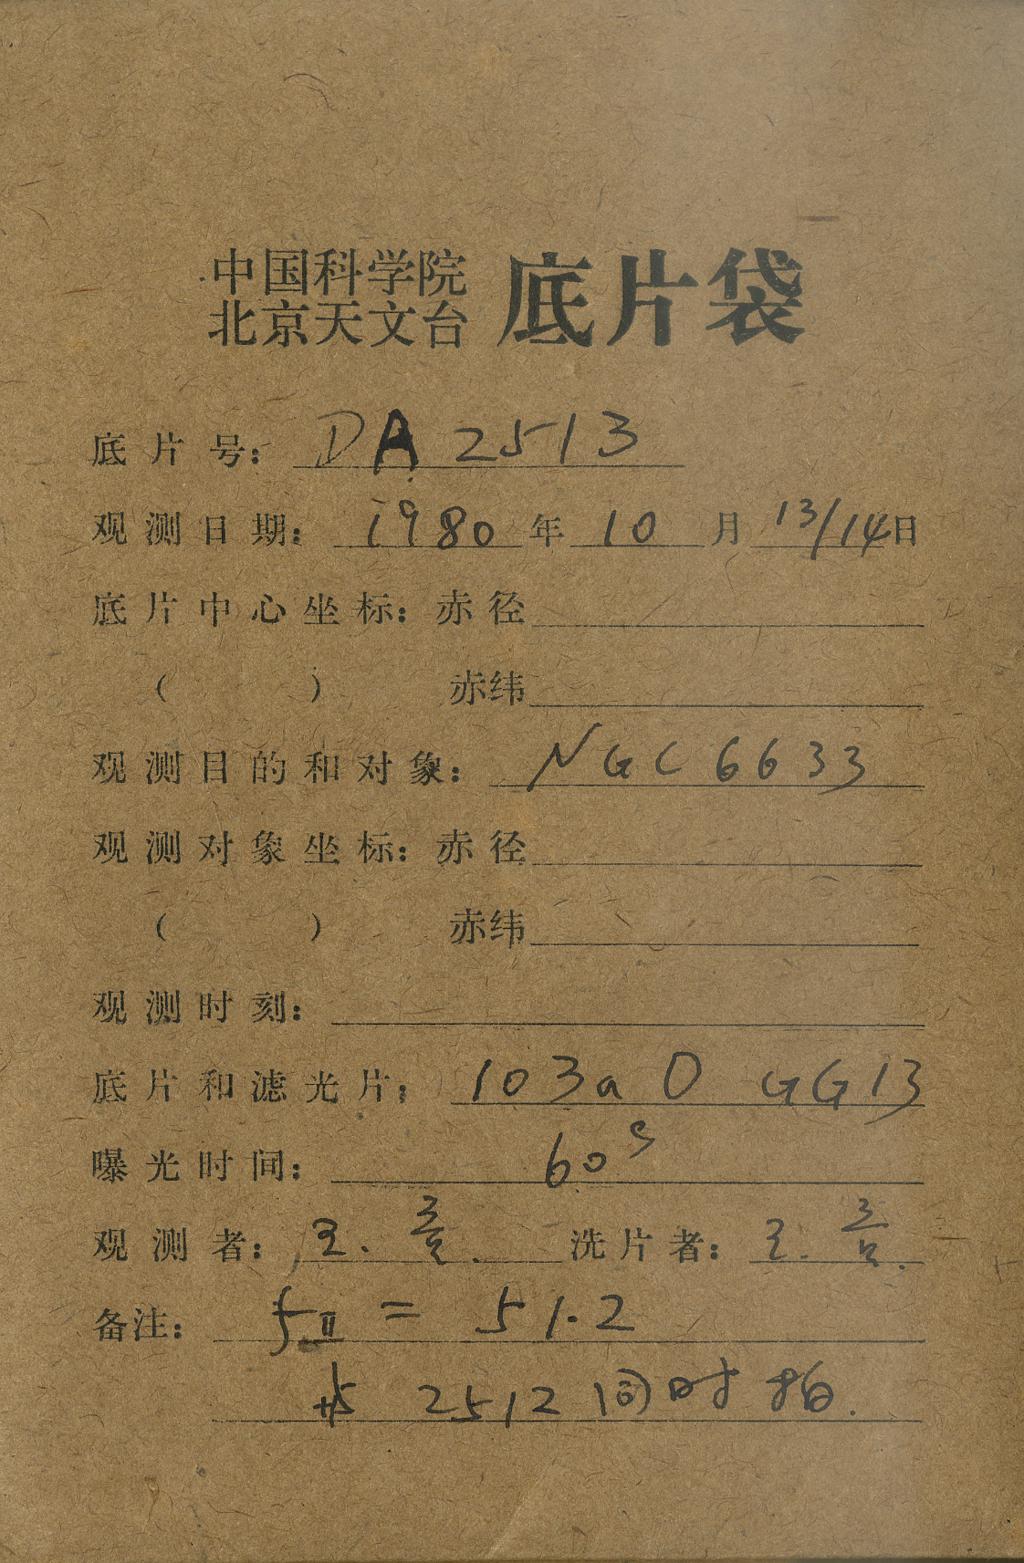 中国科学院
北京天文台 底片袋
底片号: DA 2513
观测日期: 1980 年 10 月 13/14 日
底片中心坐标: 赤径
( ) 赤纬
观测目的和对象: NGC 6633
观测对象坐标: 赤径
( ) 赤纬
观测时刻:
底片和滤光片: 103a O GG13
曝光时间: 60s
观测者: 王. 洗片者: 王.
备注: fⅡ = 51.2
2512 同时拍.